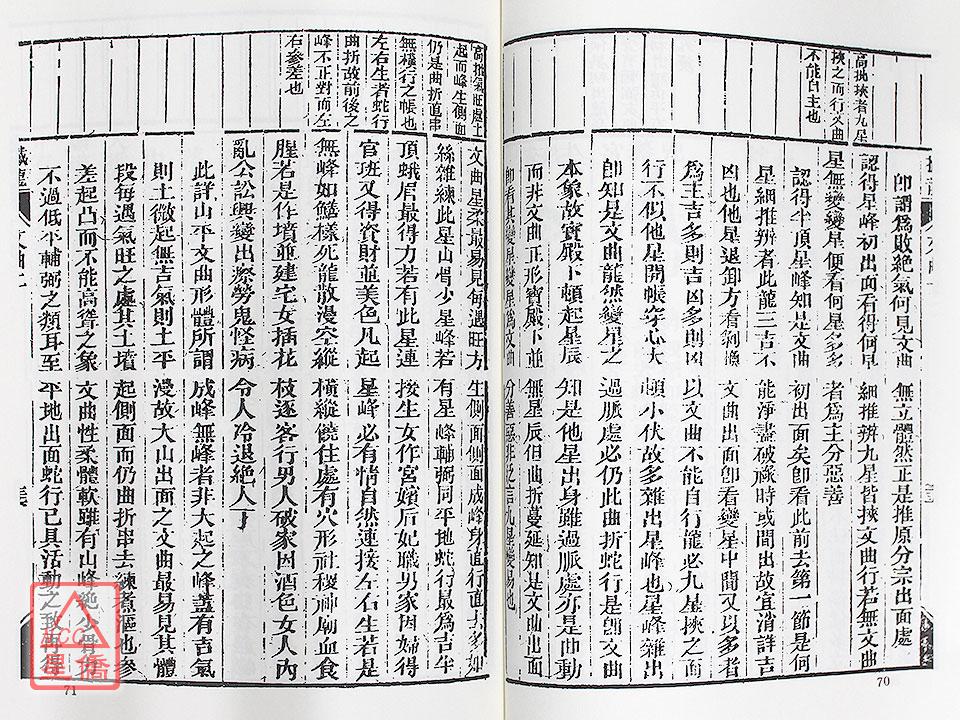 高拋挾者九星
挾之而行文曲
不能自主也
卽謂爲敗絕氣何見文曲 無立體然正是推原分宗出面處
認得星峰初出面看得何星 細推辨九星皆挾文曲行若無文曲
星無變變星便看何星多多者爲主分惡善
認得平頂星峰知是文曲 初出面矣卽看此前去第一節是何
星細推辨者此龍三吉不 能淨盡破祿時或間出故宜消詳吉
凶也他星退卸方看剝換 文曲出面卽看變星中間又以多者
爲主吉多則吉凶多則凶 以文曲不能自行龍必九星挾之而
行不似他星開帳穿心大 頓小伏故多雜出星峰也星峰雜出
卽知是文曲龍然變星之 過脈處必仍此曲折蛇行是卽文曲
本象故寶殿下頓起星辰 知是他星出身雖過脈處亦是曲動
而非文曲正形寶殿下並 無星辰但曲折蔓延知是文曲出面
卽看其變星變星爲文曲 分善惡非泛言九星變易也
高拋氣旺處土
起而峰生側面
仍是曲折逶串
無橫行之帳也
左右生者蛇行
曲折故前後之
峰不正對而左
右參差也
文曲星柔最易見每遇旺方生側面側面成峰身直行直去多如
絲雜練此星山骨少星峰若有星峰輔弼同平地蛇行最爲吉半
頂蛾眉最得力若有此星連接生女作宮嬪后妃職男家因婦得
官班又得資財並美色凡起星峰必有情自然連接左右生若是
無峰如鱔樣死龍散漫空縱橫縱饒住處有穴形社稷神廟血食
腥若是作墳並建宅女插花枝逐客行男人破家因酒色女人內
亂公訟興變出瘵勞鬼怪病令人冷退絕人丁
此詳山平文曲形體所謂 成峰無峰者非大起之峰蓋有吉氣
則土微起無吉氣則土平 漫故大山出面之文曲最易見其體
段每遇氣旺之處其土墳 起側面而仍曲折串去練煮漚也參
差起凸而不能高聳之象 文曲性柔體軟雖有山峰絕少骨
不過低平輔弼之類耳至 平地出面蛇行已具活動之致再得
71
70